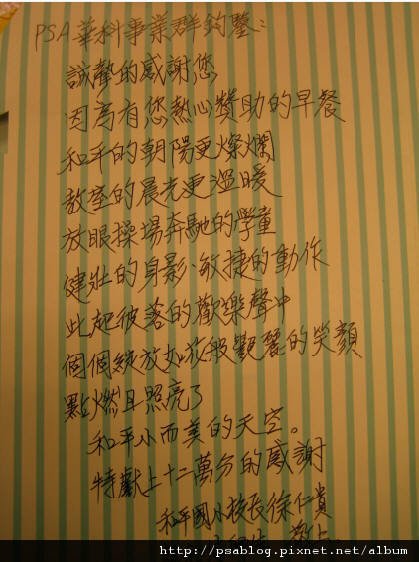 PSA華科事業群鈞鑒：
誠摯的感謝您
因為有您熱心贊助的早餐
和平的朝陽更燦爛
教室的晨光更溫暖
放眼操場奔馳的學童
健壯的身影、敏捷的動作
此起彼落的歡樂聲中
個個綻放如花般艷麗的笑顏
點燃且照亮了
和平小而美的天空。
特獻上十二萬分的感謝
和平國小校長徐仁貴
敬上
http://psablog.pixnet.net/album